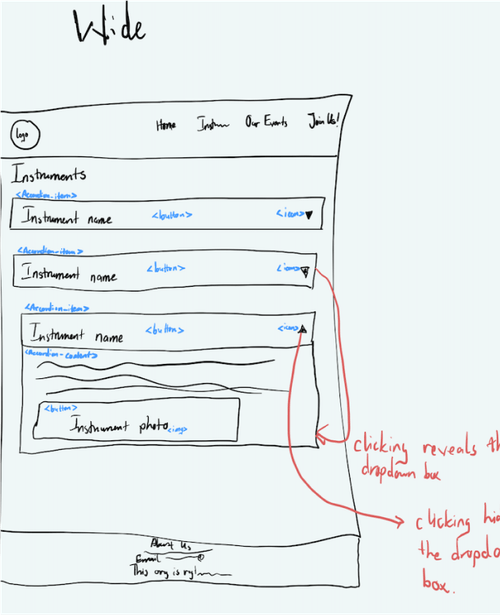 Wide
logo
Home Our Events Join Us!
Instruments
<Accordion-item>
Instrument name <button> <icon>
<Accordion-item>
Instrument name <button> <icon>
<Accordion-item>
Instrument name <button> <icon>
<Accordion-content>
<button>
Instrument photo <img>
clicking reveals th
dropdown box
clicking hid
the dropdo
box.
About Us
Email
This org is